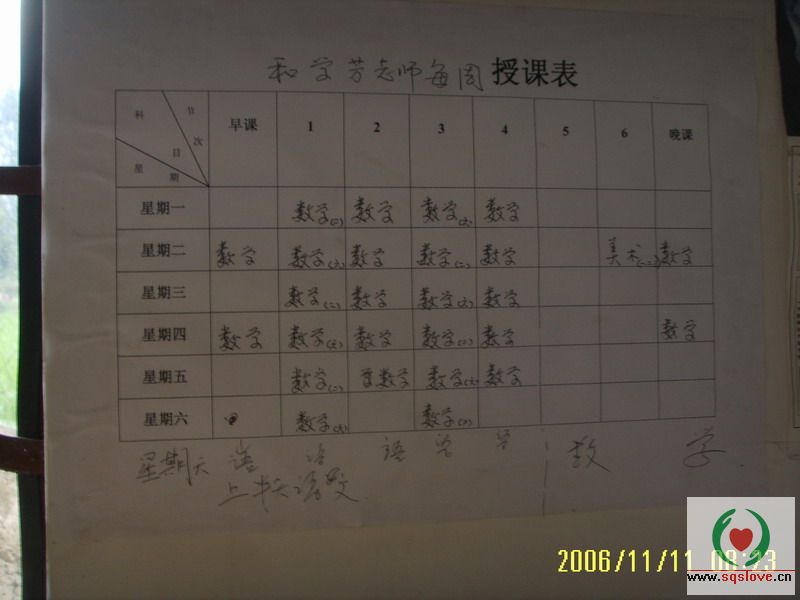 和学芳老师每周授课表
科 节 次 目 星 期 早课 1 2 3 4 5 6 晚课
星期一 数学(二) 数学 数学(六) 数学
星期二 数学 数学(六) 数学 数学(二) 数学 美术(二) 数学
星期三 数学(二) 数学 数学(六) 数学
星期四 数学 数学(六) 数学 数学(二) 数学 数学
星期五 数学(二) 数学 数学(六) 数学
星期六 数学(六) 数学(二)
星期天 语 数 学
上半天语文
2006/11/11 08:23
www.sqslove.cn